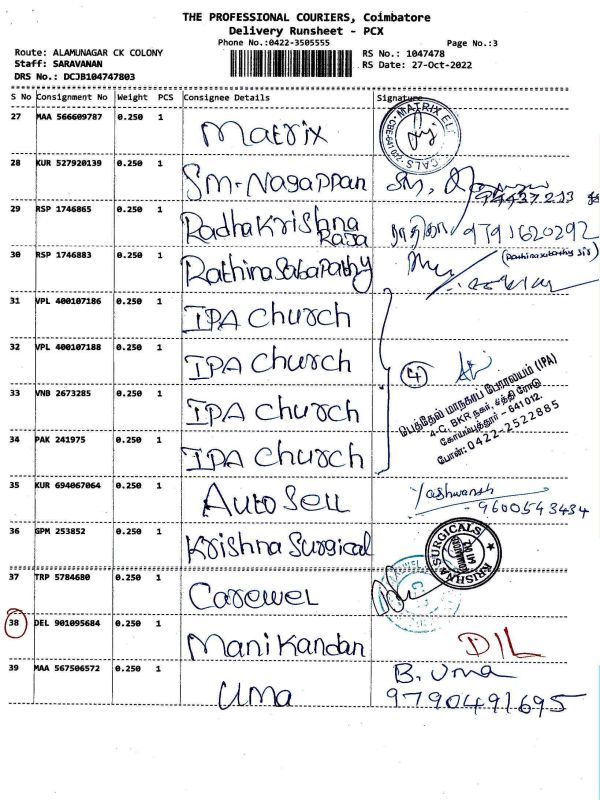 THE PROFESSIONAL COURIERS, Coimbatore
Delivery Runsheet - PCX
Phone No.:0422-3505555
Page No.:3
Route: ALAMUNAGAR CK COLONY
RS No.: 1047478
Staff: SARAVANAN
RS Date: 27-Oct-2022
DRS No.: DCJB104747803
S No Consignment No Weight PCS Consignee Details Signature
27 MAA 566609787 0.250 1 Matrix
MATRIX
28 KUR 527920139 0.250 1 SM.Nagappan
29 RSP 1746865 0.250 1 RadhaKrishna Raja 9791620292
30 RSP 1746883 0.250 1 RathinaSabaPathy
(Rathinasabathy Sir)
31 VPL 400107186 0.250 1 IPA Church
32 VPL 400107188 0.250 1 IPA Church
4
33 VNB 2673285 0.250 1 IPA Church
34 PAK 241975 0.250 1 IPA Church
பெத்தேல் மாநகரப் பேராலயம் (IPA)
4-C, BKR நகர், சத்தி ரோடு
கோயம்புத்தூர் - 641012.
போன்: 0422-2522885
35 KUR 694067064 0.250 1 Auto Sell Yashwansh
9600543434
36 GPM 253852 0.250 1 Krishna Surgical
KRISHNA SURGICALS
37 TRP 5784680 0.250 1 Carewel
38 DEL 901095684 0.250 1 Mani Kandan D/L
39 MAA 567506572 0.250 1 Uma B. Uma
9790491695